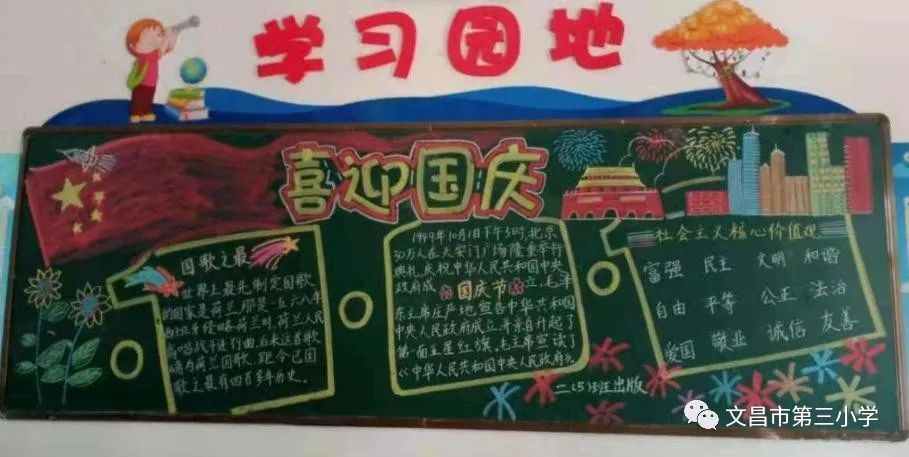 学习园地
喜迎国庆
国歌之最
世界上最先制定国歌
的国家是荷兰那是一五六八年
荷兰人民
高唱战斗进行曲,后来这首歌
确为荷兰国歌,距今已国
歌之最有四百多年历史。
1949年10月1日下午3时,北京
30万人在天安门广场隆重举行
典礼,庆祝中华人民共和国中央
政府成
国庆节
立,毛泽
东主席庄严地宣告中华共和国
中央人民政府成立,并亲自升起了
第一面五星红旗,毛主席宣读了
《中华人民共和国中央人民政府》。
社会主义核心价值观
富强 民主 文明 和谐
自由 平等 公正 法治
爱国 敬业 诚信 友善
二(5)班出版
文昌市第三小学